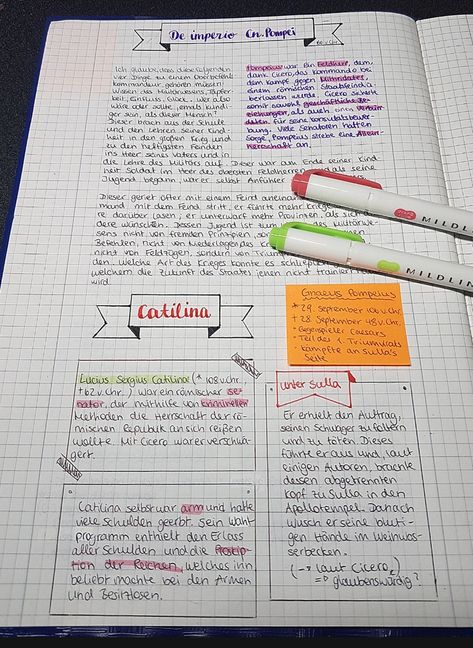 De imperio Cn. Pompei
66 v. Chr.
Ich glaube, dass diese folgenden
vier Dinge zu einem Oberbefehls-
kommandeur gehören müssen:
Wissen des Militärwesens, Tapfer-
keit, Einfluss, Glück. Wer also
ist oder wäre jemals kundi-
ger sein, als dieser Mensch?
Dieser brach aus der Schule
und den Lehren seiner Kind-
heit in den großen Krieg und
zu den heftigsten Feinden
ins Heer seines Vaters und in
die Lehre des Militärs auf. Dieser war am Ende seiner Kind-
heit Soldat im Heer des obersten Feldherren und als seine
Jugend begann, war er selbst Anführer
Pompeius war ein Feldherr, dem,
dank Cicero, das Kommando bei
dem Kampf gegen Mithridates,
einem römischen Staatsfeind,
überlassen wurde. Cicero sicherte
somit sowohl geschäftliche Be-
ziehungen, als auch einen
für seine Konsulatsbewer-
bung. Viele Senatoren hatten
Sorge, Pompeius strebe eine Allein-
herrschaft an.
Dieser geriet öfter mit einem Feind aneinander
mand mit dem Feind stritt, er führte mehr Kriege
re darüber lasen, er unterwarf mehr Provinzen, als sich
dere wünschen. Dessen Jugend ist zum des Militärwe-
sens nicht von fremden Prinzipien, so
Befehlen, nicht von Niederlagen des
nicht von Feldzügen, sondern von Triumph
den. Welche Art des Krieges konnte es schließlich
welchem die Zukunft des Staates jenen nicht trainiert
wird.
MILDLIN
MILDLIN
Catilina
Gnaeus Pompeius
* 29. September 106 v. Chr.
+ 28. September 48 v. Chr.
- Gegenspieler Caesars
- Teil des 1. Triumvirats
- kämpfte an Sulla's
Seite
Lucius Sergius Catilina (* 108 v. Chr.
+ 62 v. Chr.) war ein römischer Se-
nator, der mithilfe von kriminellen
Methoden die Herrschaft der rö-
mischen Republik an sich reißen
wollte. Mit Cicero war er verschwä-
gert.
Catilina selbst war arm und hatte
viele Schulden geerbt. Sein Wahl-
programm enthielt den Erlass
aller Schulden und die Proskrip-
tion der Reichen, welches ihn
beliebt machte bei den Armen
und Besitzlosen.
unter Sulla
Er erhielt den Auftrag,
seinen Schwager zu foltern
und zu töten. Dieses
führte er aus und, laut
einigen Autoren, brachte
dessen abgetrennten
Kopf zu Sulla in den
Apollotempel. Danach
wusch er seine bluti-
gen Hände im Weihwas-
serbecken.
(→ laut Cicero,
⇒ glaubenswürdig?